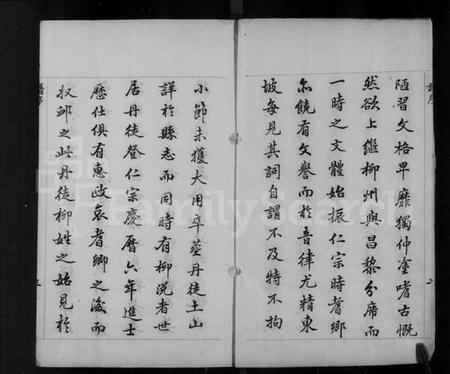 陋習文格卑靡獨仲塗嗜古慨
然欲上繼柳州與昌黎分席而
一時之文體始振仁宗時耆卿
亦饒有文譽而於音律尤精東
坡每見其詞自謂不及特不拘
小節未獲大用卒塟丹徒土山
詳於縣志而同時有柳説者世
居丹徒登仁宗慶曆六年進士
歷仕俱有惠政哀者卿之後而
収卹之此丹徒柳姓之始見於
FamilySearch